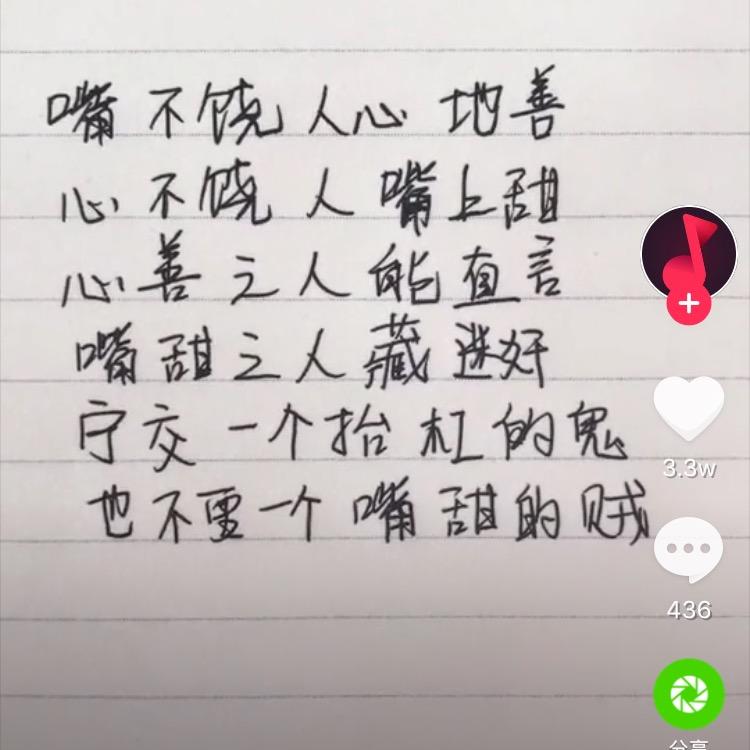 嘴不饶人心地善
心不饶人嘴上甜
心善之人能直言
嘴甜之人藏迷奸
宁交一个抬杠的鬼
也不要一个嘴甜的贼
3.3w
436
分享